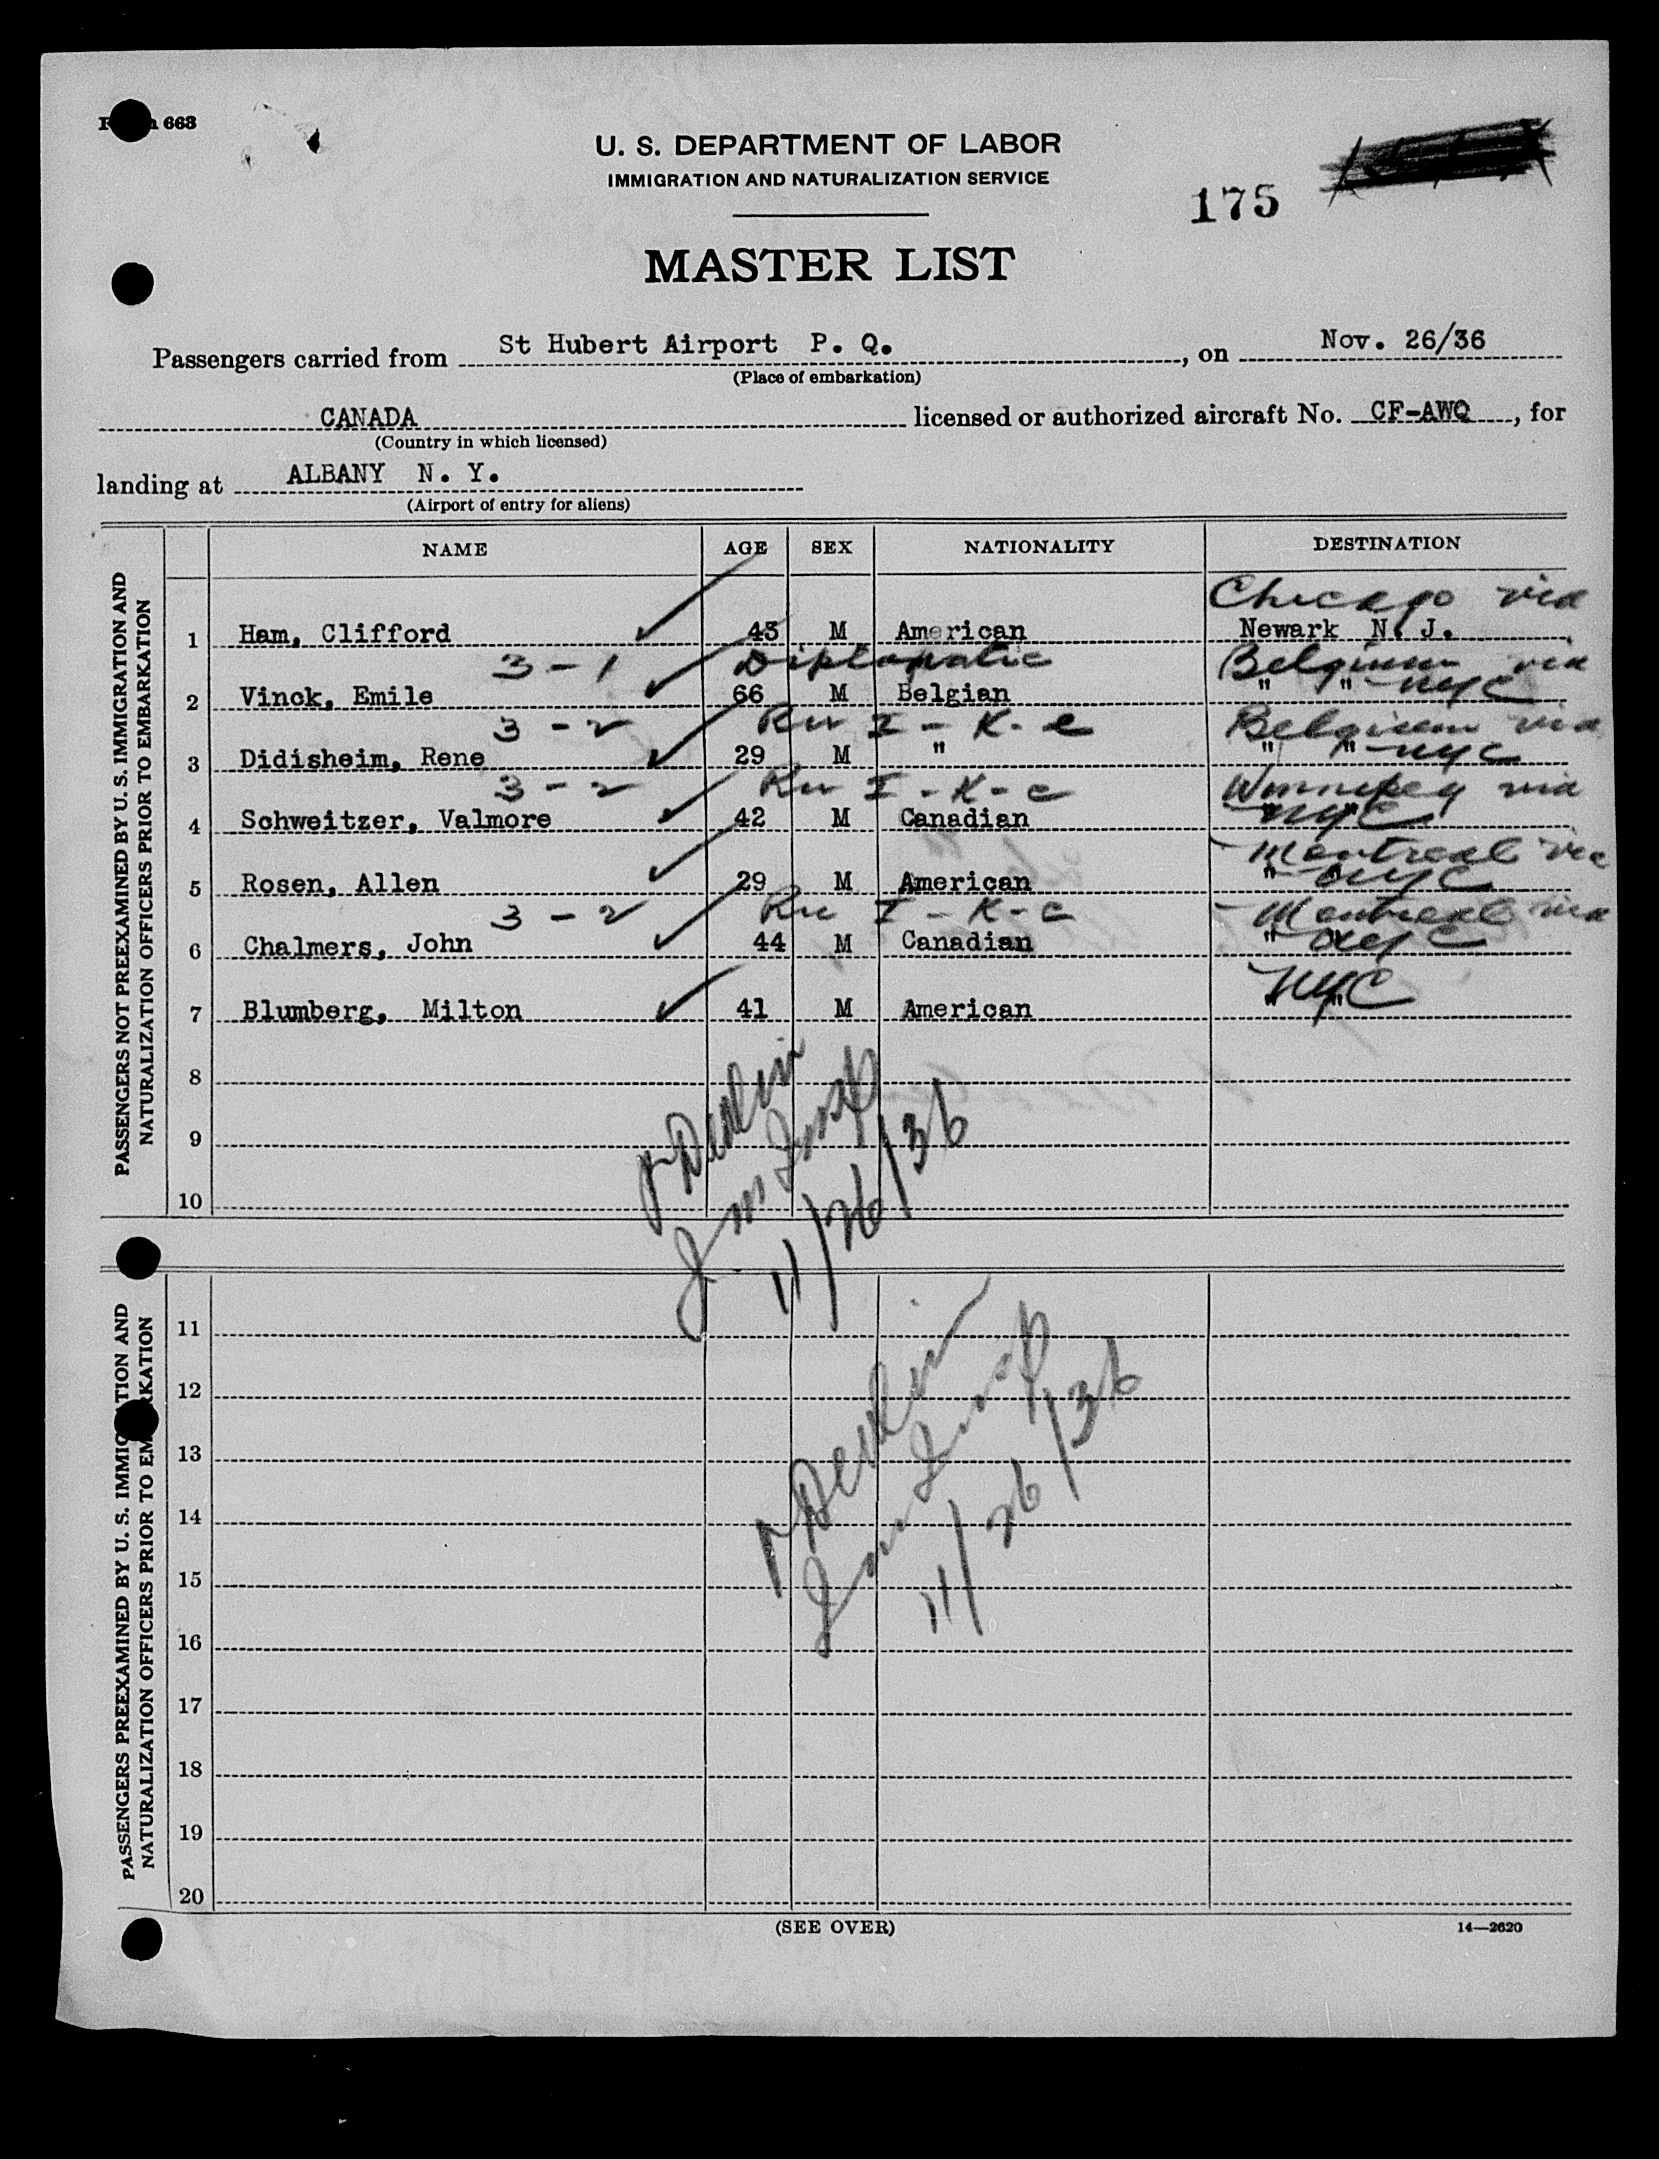 663
U. S. DEPARTMENT OF LABOR
IMMIGRATION AND NATURALIZATION SERVICE
175
MASTER LIST
Passengers carried from St Hubert Airport P. Q., on Nov. 26/36
(Place of embarkation)
CANADA licensed or authorized aircraft No. CF-AWQ, for
(Country in which licensed)
landing at ALBANY N. Y.
(Airport of entry for aliens)
PASSENGERS NOT PREEXAMINED BY U. S. IMMIGRATION AND
NATURALIZATION OFFICERS PRIOR TO EMBARKATION
NAME AGE SEX NATIONALITY DESTINATION
Chicago via
1 Ham, Clifford 43 M American Newark N. J.
3-1 Diplomatic Belgium via
2 Vinck, Emile 66 M Belgian " " NYC
3-2 I-K-c Belgium via
3 Didisheim, Rene 29 M " " " NYC
3-2 I-K-c Winnipeg via
4 Schweitzer, Valmore 42 M Canadian " " NYC
Montreal via
5 Rosen, Allen 29 M American " " NYC
3-2 I-K-c Montreal via
6 Chalmers, John 44 M Canadian " " NYC
7 Blumberg, Milton 41 M American " " NYC
8
9
10
11/26/36
PASSENGERS PREEXAMINED BY U. S. IMMIGRATION AND
NATURALIZATION OFFICERS PRIOR TO EMBARKATION
11
12
13
14
15
16
17
18
19
20
11/26/36
(SEE OVER)
14—2620